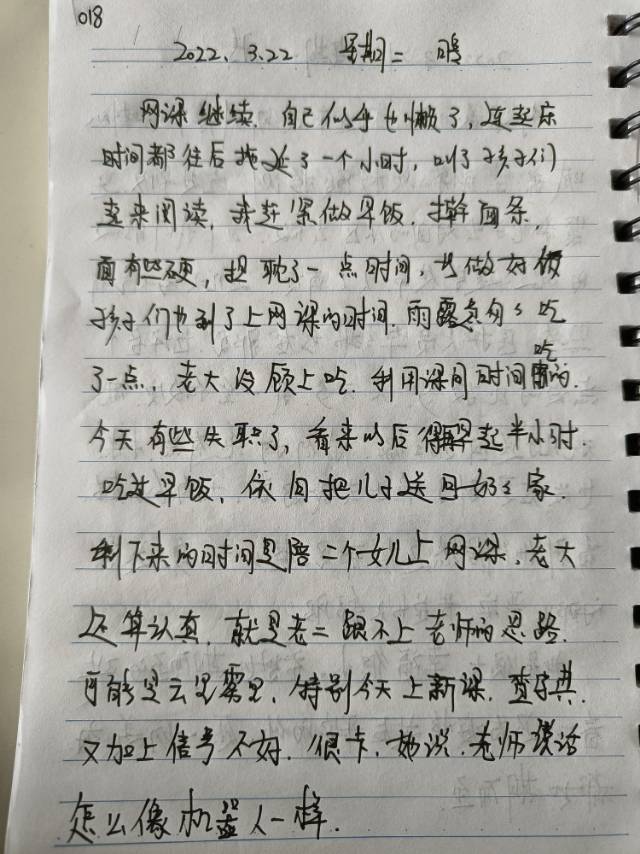 018
2022. 3.22 星期二 暖
网课继续. 自己似乎也懒了, 连起床
时间都往后拖延了一个小时, 叫了孩子们
起来阅读, 我赶紧做早饭. 擀面条,
面有些硬, 担耽了一点时间, 当做好饭
孩子们也到了上网课的时间. 雨露匆匆吃
了一点, 老大没顾上吃. 利用课间时间吃的.
今天有些失职了, 看来以后得早起半小时.
吃过早饭, 依旧把儿子送回奶奶家.
剩下来的时间是陪二个女儿上网课. 老大
还算认真, 就是老二跟不上老师的思路.
可能是云里雾里, 特别今天上新课. 查字典.
又加上信号不好. 很卡, 她说, 老师说话
怎么像机器人一样.